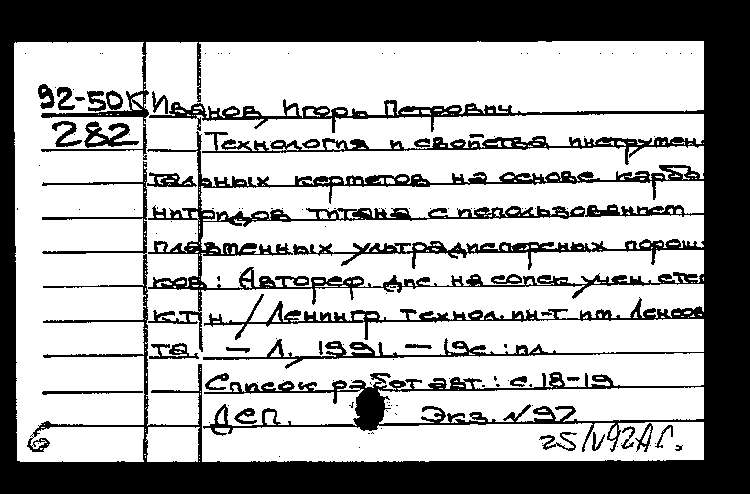 92-50К Иванов, Игорь Петрович.
282 Технология и свойства инструмен-
тальных керметов на основе карбо-
нитридов титана с использованием
плазменных ультрадисперсных порош-
ков : Автореф. дис. на соиск. учен. степ
к.т.н. / Ленингр. технол. ин-т им. Ленсов
та. — Л., 1991. — 19с. : ил.
Список работ авт. : с. 18-19
ДСП. Экз. N92
6 25/IV92 АГ.